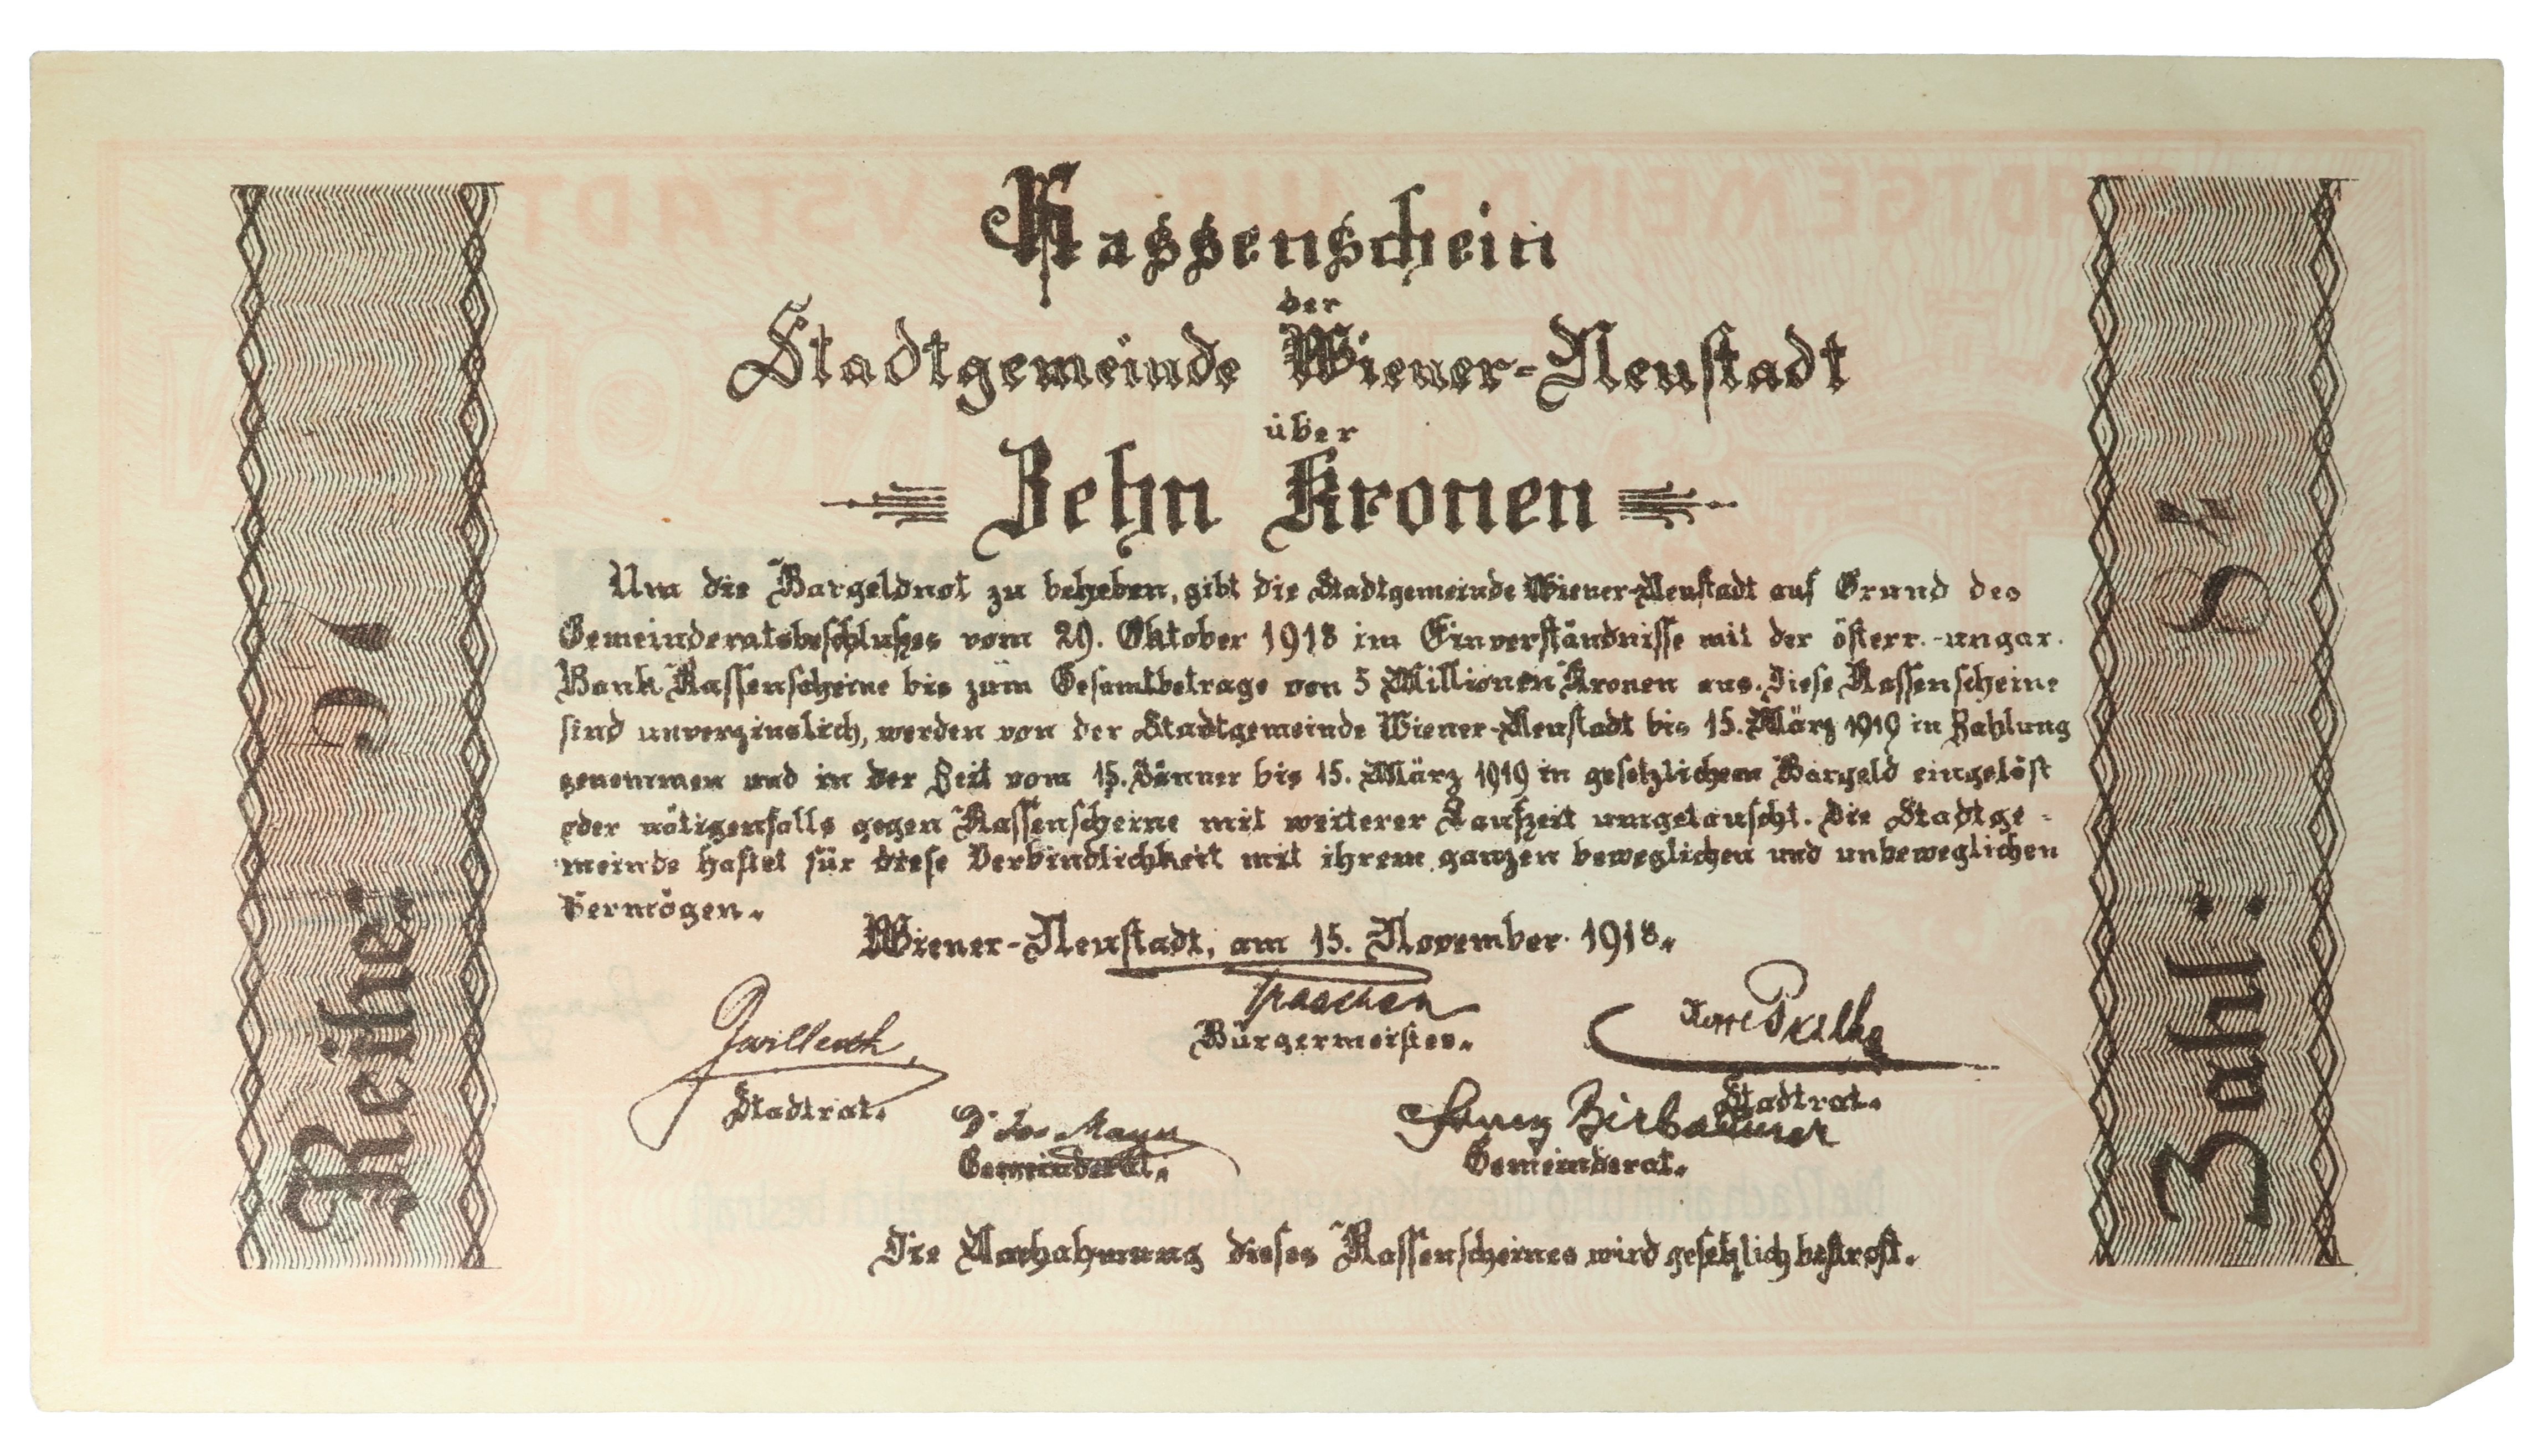 Kassenschein
der
Stadtgemeinde Wiener-Neustadt
über
Zehn Kronen
Um die Bargeldnot zu beheben, gibt die Stadtgemeinde Wiener-Neustadt auf Grund des
Gemeinderatsbeschlußes vom 29. Oktober 1918 im Einverständnisse mit der österr.-ungar.
Bank Kassenscheine bis zum Gesamtbetrage von 5 Millionen Kronen aus. Diese Kassenscheine
sind unverzinslich, werden von der Stadtgemeinde Wiener-Neustadt bis 15. März 1919 in Zahlung
genommen und in der Zeit vom 15. Jänner bis 15. März 1919 in gesetzlichem Bargeld eingelöst
oder nötigenfalls gegen Kassenscheine mit weiterer Laufzeit umgetauscht. Die Stadtge-
meinde haftet für diese Verbindlichkeit mit ihrem ganzen beweglichen und unbeweglichen
Vermögen.
Wiener-Neustadt, am 15. November 1918.
Bürgermeister.
Stadtrat.
Stadtrat.
Franz Birbaumer
Gemeinderat.
Gemeinderat.
Die Nachahmung dieses Kassenscheines wird gesetzlich bestraft.
Reihe:
Zahl: 84